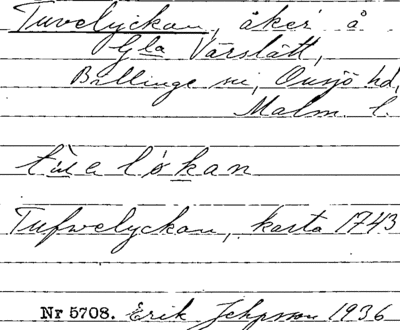 Tuvelyckan, åker å
Gla Värslätt,
Billinge sn, Onsjö hd,
Malm. l.
Tufvelyckan, karta 1743
Nr 5708. Erik Jehpsson 1936